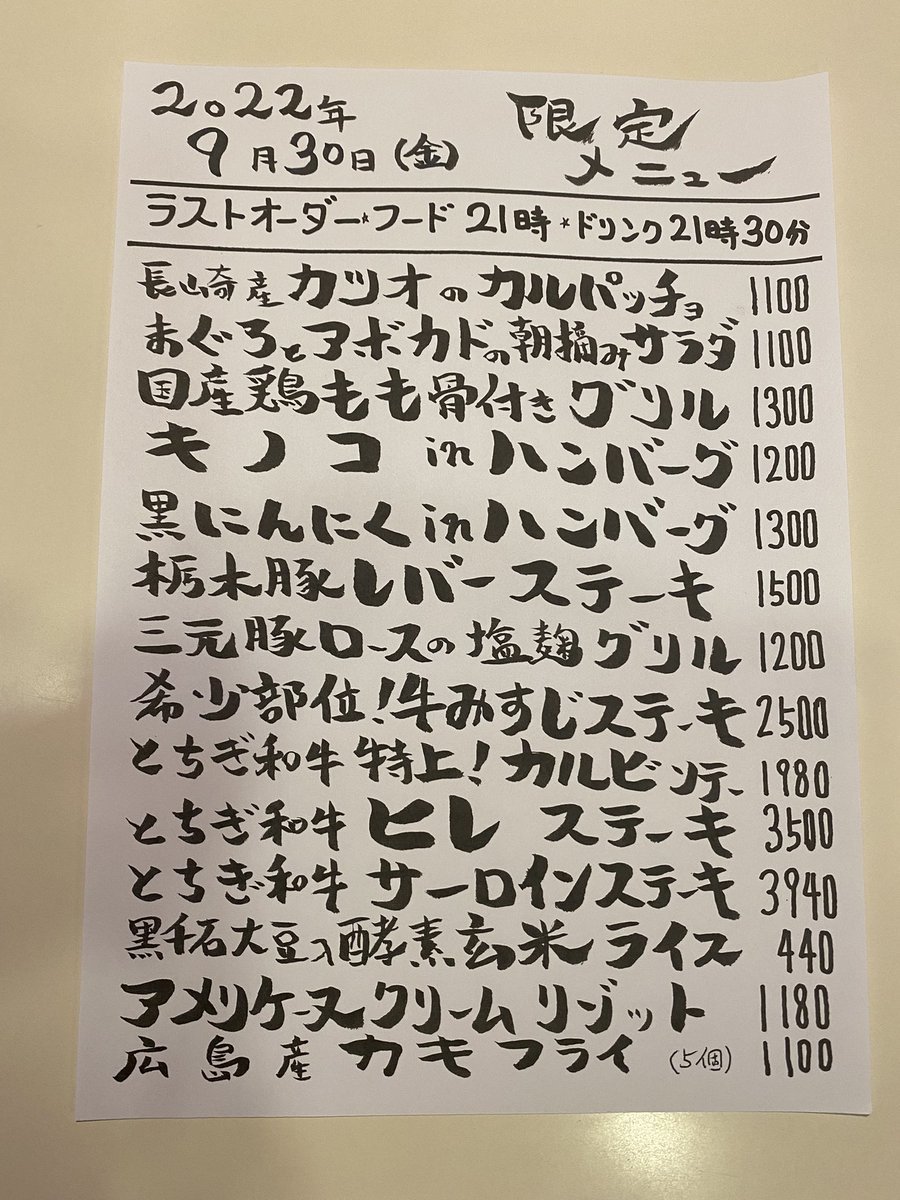 2022年
9月30日(金)
限定
メニュー
ラストオーダー*フード 21時 *ドリンク21時30分
長崎産カツオのカルパッチョ 1100
まぐろとアボカドの朝摘みサラダ 1100
国産鶏もも骨付きグリル 1300
キノコinハンバーグ 1200
黒にんにくinハンバーグ 1300
栃木豚レバーステーキ 1500
三元豚ロースの塩麹グリル 1200
希少部位!牛みすじステーキ 2500
とちぎ和牛特上!カルビソテー 1980
とちぎ和牛ヒレステーキ 3500
とちぎ和牛サーロインステーキ 3940
黒千石大豆入酵素玄米ライス 440
アメリケーヌクリームリゾット 1180
広島産カキフライ(5個) 1100